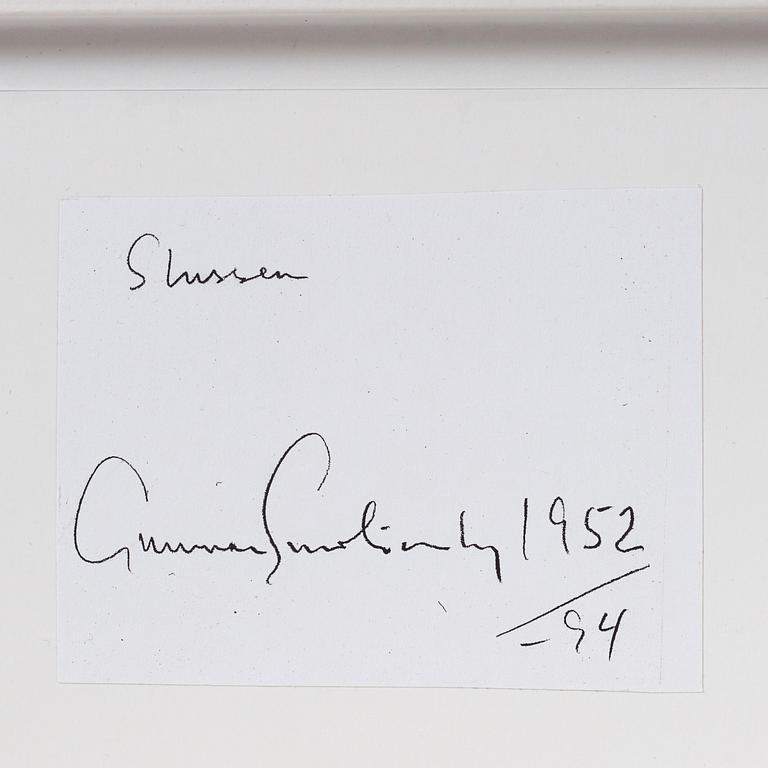 Slussen
Gunnar Smoliansky 1952
-94